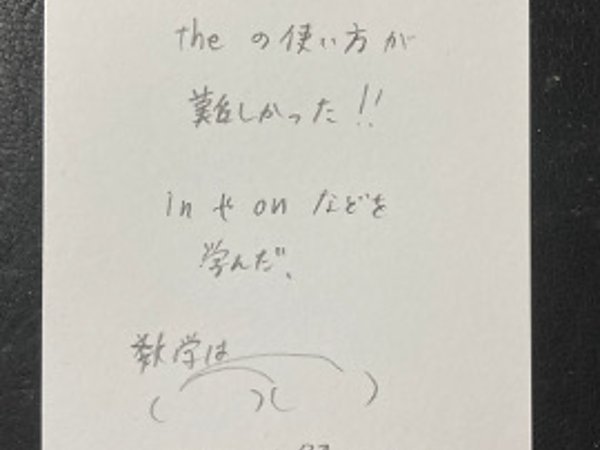 the の使い方が
難しかった!!
in や on などを
学んだ、
数学は
(   )(   )